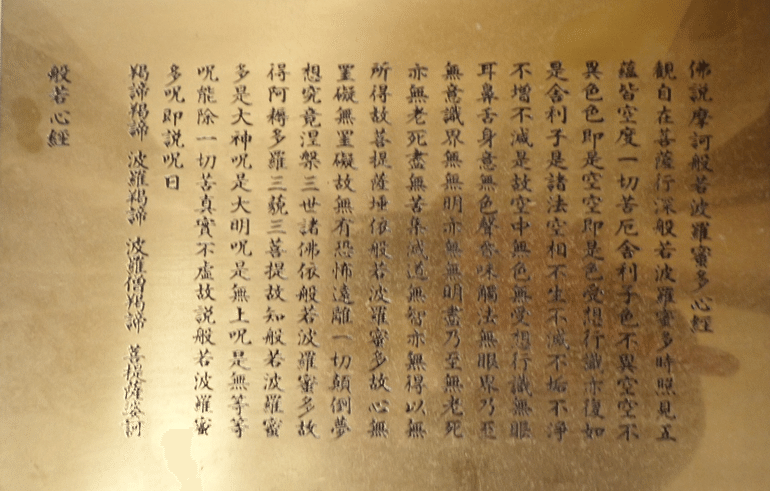 佛説摩訶般若波羅蜜多心經
観自在菩薩行深般若波羅蜜多時照見五
蘊皆空度一切苦厄舎利子色不異空空不
異色色即是空空即是色受想行識亦復如
是舎利子是諸法空相不生不滅不垢不淨
不増不減是故空中無色無受想行識無眼
耳鼻舌身意無色聲香味觸法無眼界乃至
無意識界無無明亦無無明盡乃至無老死
亦無老死盡無苦集滅道無智亦無得以無
所得故菩提薩埵依般若波羅蜜多故心無
罣礙無罣礙故無有恐怖遠離一切顛倒夢
想究竟涅槃三世諸佛依般若波羅蜜多故
得阿耨多羅三藐三菩提故知般若波羅蜜
多是大神呪是大明呪是無上呪是無等等
呪能除一切苦真實不虚故説般若波羅蜜
多呪即説呪曰
羯諦羯諦 波羅羯諦 波羅僧羯諦 菩提薩婆訶
般若心經